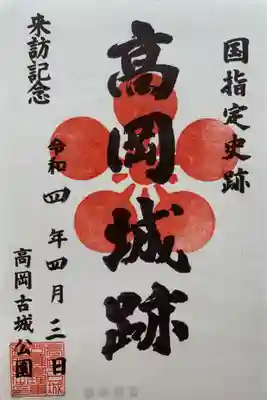 国指定史跡
高岡城跡
来訪記念
令和四年四月三日
高岡古城公園